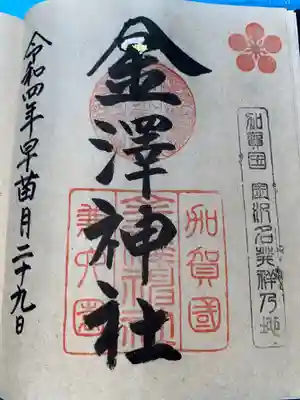 加賀國 金沢名発祥乃地
金澤神社
加賀國
兼六園
令和四年早苗月二十九日